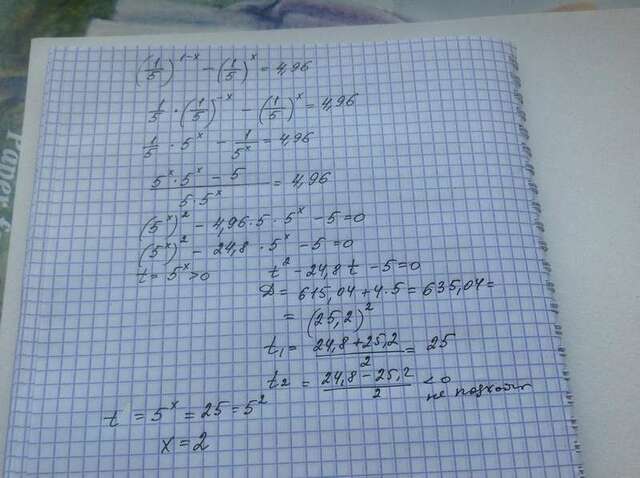 (1/5)^(1-x) - (1/5)^x = 4,96
1/5 · (1/5)^(-x) - (1/5)^x = 4,96
1/5 · 5^x - 1/5^x = 4,96
(5^x · 5^x - 5)/(5 · 5^x) = 4,96
(5^x)^2 - 4,96 · 5 · 5^x - 5 = 0
(5^x)^2 - 24,8 · 5^x - 5 = 0
t = 5^x > 0 t^2 - 24,8t - 5 = 0
D = 615,04 + 4 · 5 = 635,04 =
= (25,2)^2
t₁ = (24,8 + 25,2)/2 = 25
t₂ = (24,8 - 25,2)/2 < 0
не подходит
t = 5^x = 25 = 5^2
x = 2
Paper